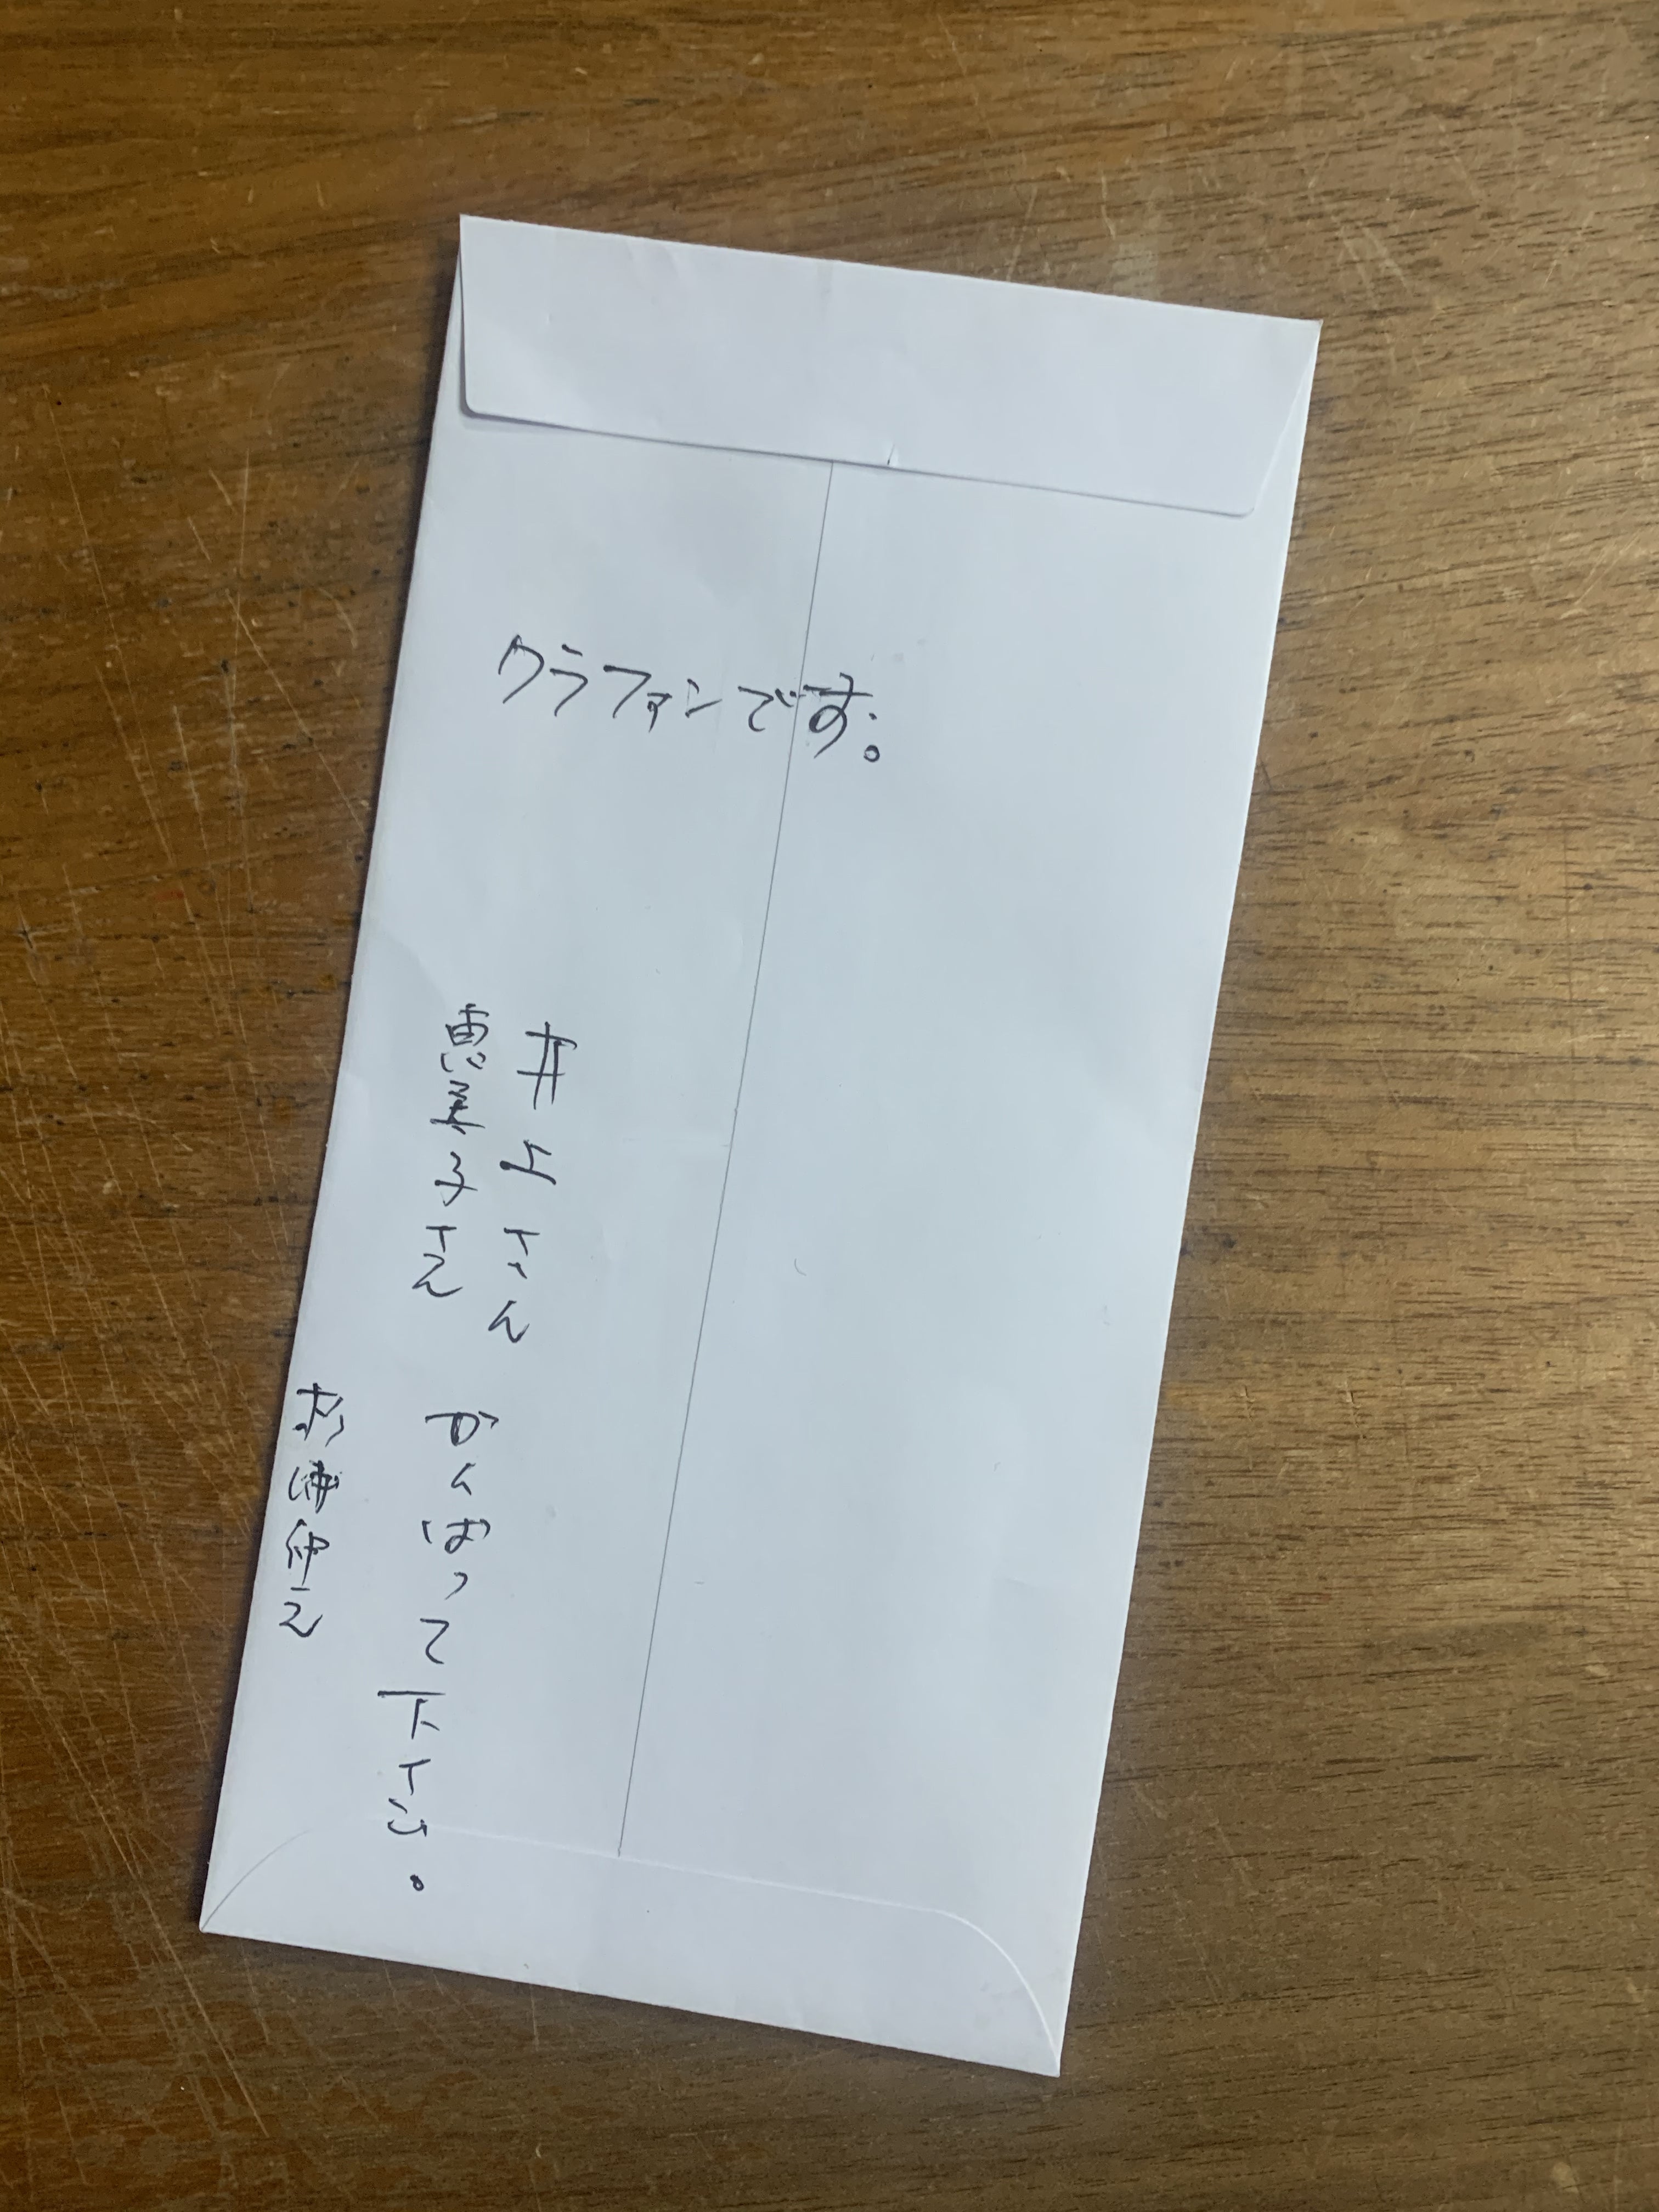 クラファンです。
井上さん
恵美子さん
がんばって下さい。
杉浦伸之